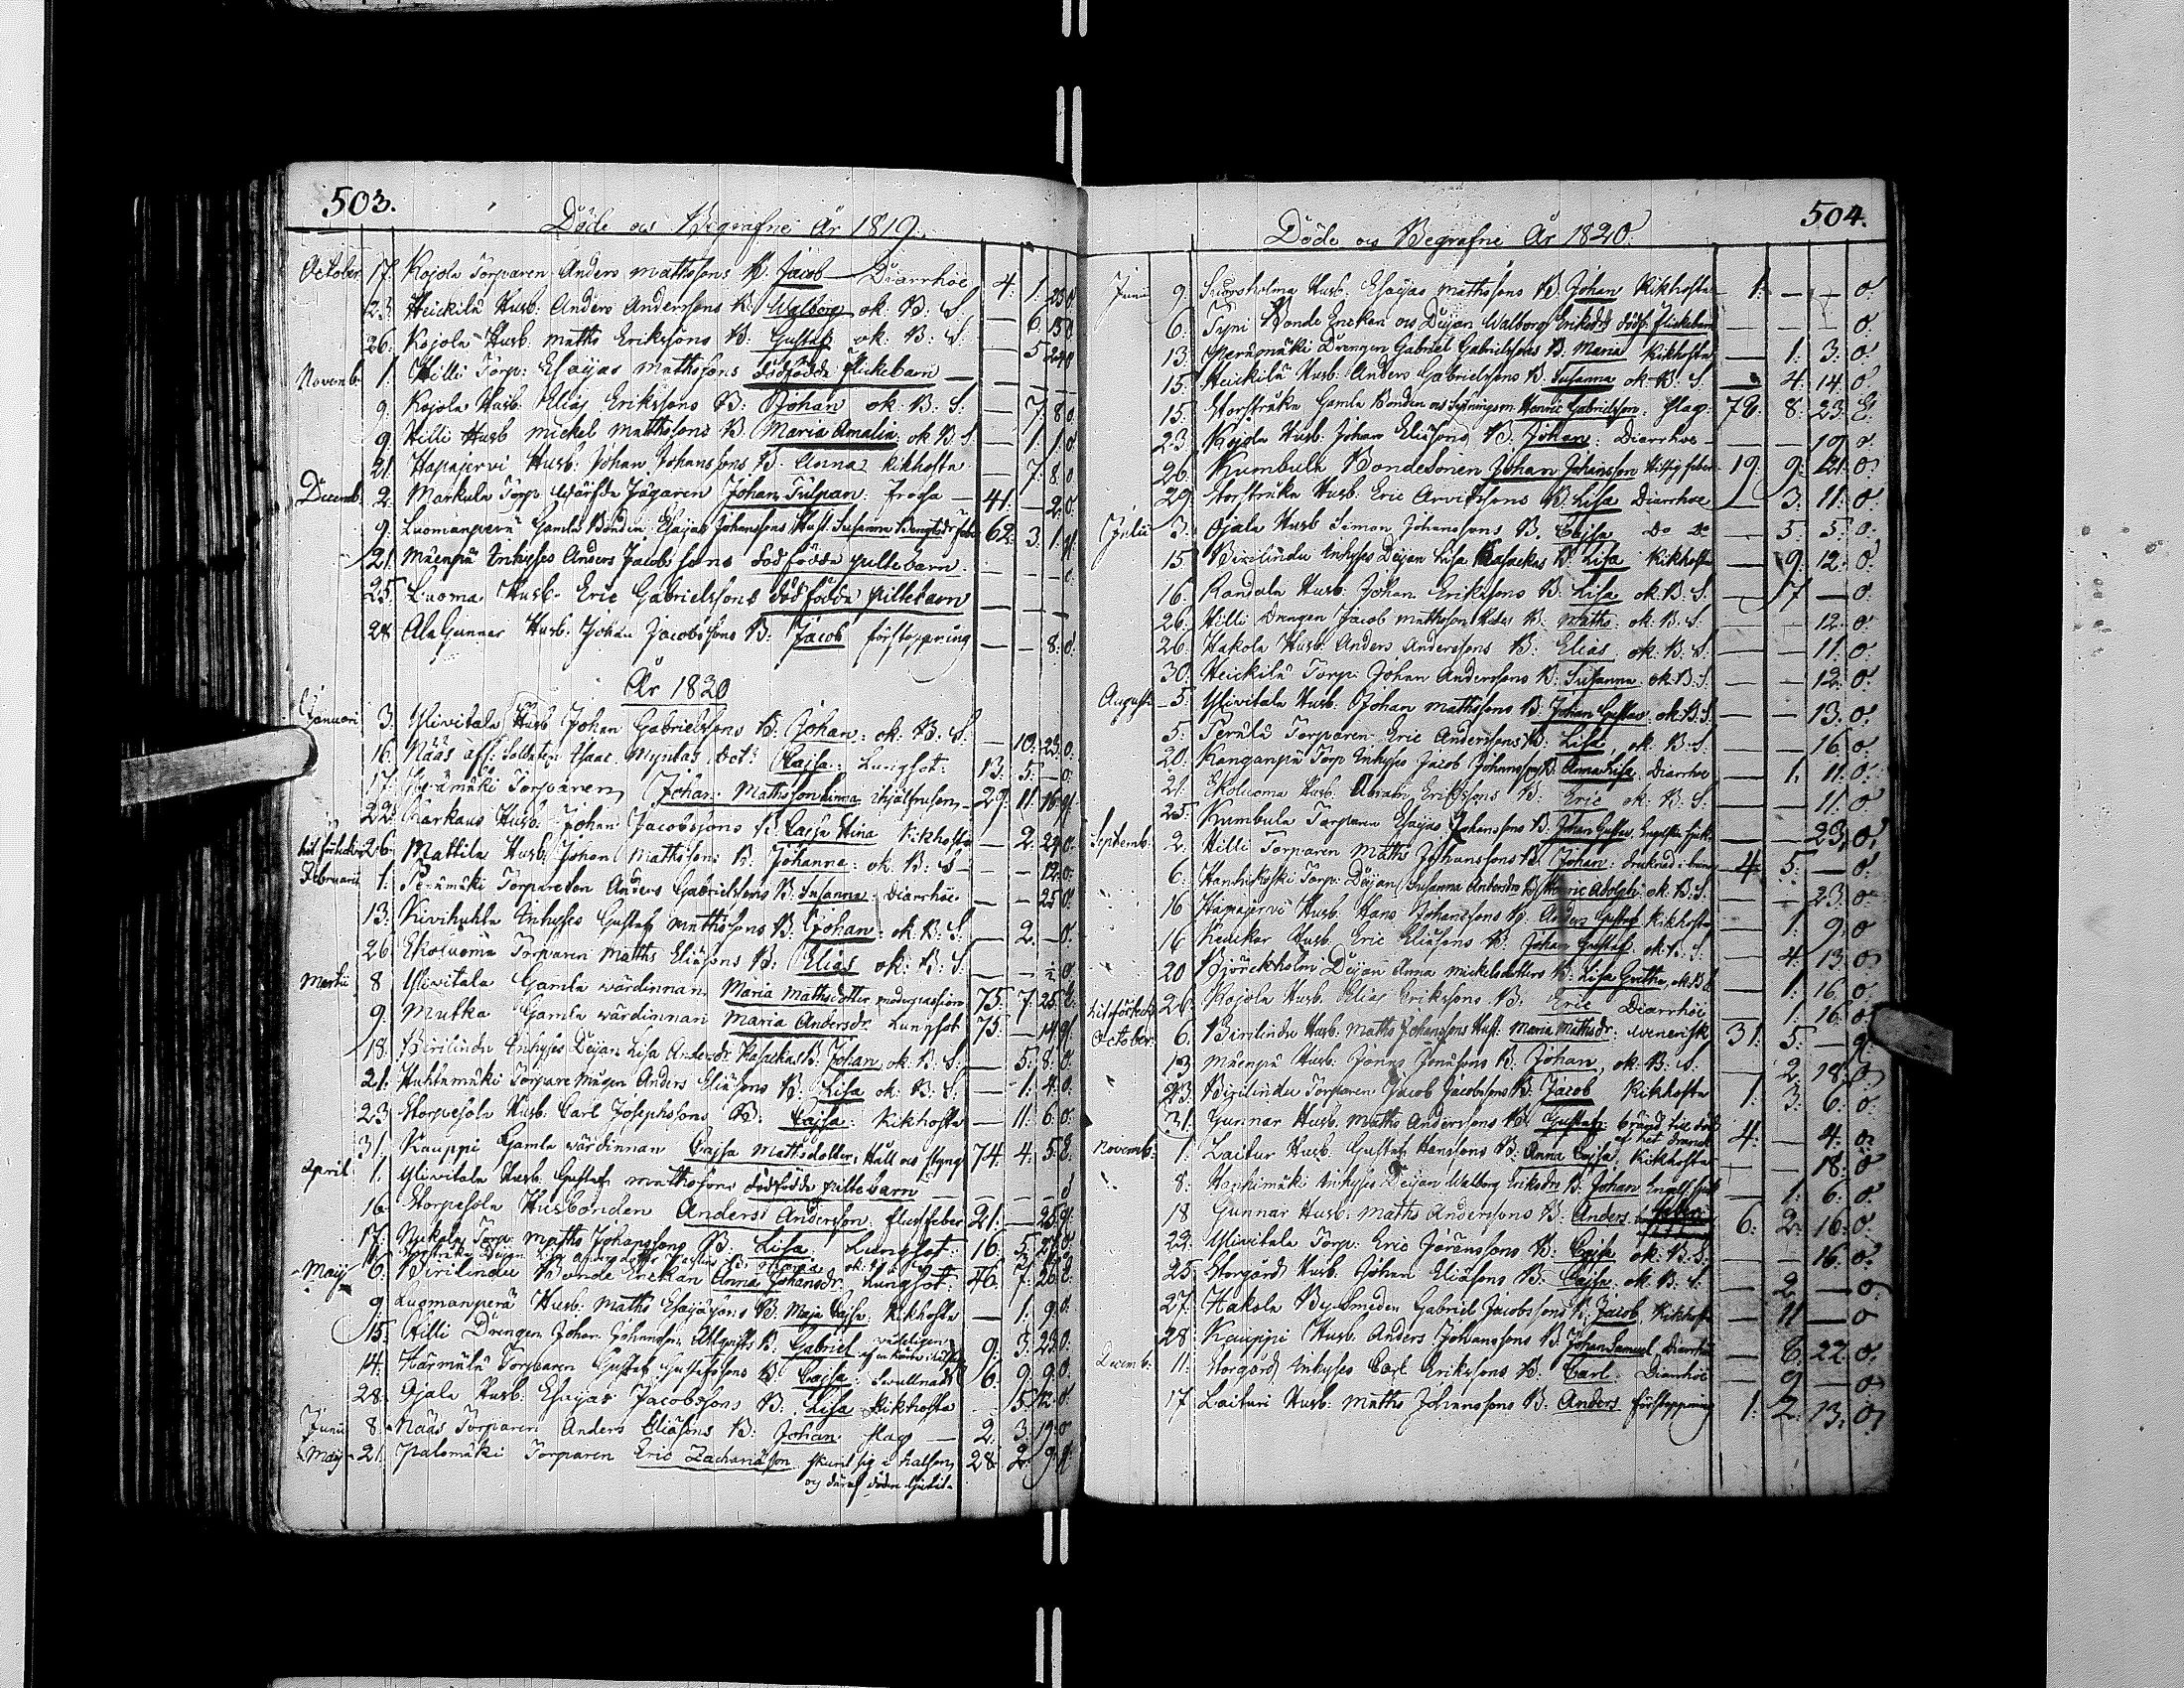 503.
Döde och Begrafne År 1819.
October 17. Kojola Torparen Anders Mathssons B: Jacob Diarrhoe 4: 1: 23 0
23 Heickilä Husb: Anders Anderssons B: Walborg ok: B: S: — 6: 15 0
26. Kojola Husb. Maths Erikssons B: Gustaf ok: B: S: — 5 24 0
Novemb: 1. Hilli Torp: Esaijas Mathssons dödfödda flickebarn — — —
9. Kojola Husb: Elias Erikssons B: Johan ok: B: S: — 7: 8 0
9. Hilli Husb Mickel Mathssons B: Maria Amalia ok B S — 1. 1. 0
21. Hapajervi Husb: Johan Johanssons B. Anna kikhosta — 7: 8. 0
Decemb: 2. Markula Torp: Jägaren Johan Tulpan: Frossa — 41: — 2. 0
9. Luomanperä Gamla Bonden Esaijas Johanssons Hust. Susanna 62: 3. 1. g.
21. Mäenpä Inhyses Anders Jacobssons dödfödda piltebarn — — 0
25. Luoma Husb: Eric Gabrielssons dödfödda piltebarn — — —
28 Ala Gunnar Husb: Johan Jacobssons B: Jacob förstoppning — — 8. 0.
År 1820
Januari 3. Ylivitala Husb Johan Gabrielssons B: Johan: ok: B: S: — 10. 23. 0.
16. Näås aff: Soldaten Isaac Myntas Cajsa: Lungsot: 13: 5: — 0.
17. Perämäki Torparen Johan Mathsson 29. 11. 16. g.
22. Karkaus Husb. Johan Jacobssons B: Cajsa Stina Kikhosta 2. 29. 0.
26. Mattila Husb: Johan Mathssons B: Johanna: ok: B: S — — 12. 0.
Februarii 1. Perämäki Torpareson Anders Gabrielssons B: Susanna Diarrhoe — — 25 0.
13. Kivihuhta Inhyses Gustaf Mathssons B: Johan: ok: B: S: — 2. — 0.
26 Ekoluoma Torparen Maths Eliäsons B: Elias ok: B: S: — — 0.
Martii 8 Ylivitala Gamla wärdinnan Maria Mathsdotter moderpassion 75. 7. 25. E.
9. Mutka Gamla wärdinnan Maria Andersdr. Lungsot 75. — 14. g.
18. Birilindu Inhyses Deijan Lisa Andersdr B. Johan ok: B: S: — 5. 8. 0.
21. Huhtamäki Torpare Mågen Anders Eliäsons B: Lisa ok: B: S: — 1. 4. 0.
23 Storpesola Husb: Carl Josephssons B: Cajsa: Kikhosta — 11. 6. 0.
31. Kauppi Gamla wärdinnan Cajsa Mathsdotter, Håll och styng 74. 4. 5. E.
April 1. Ylivitala Husb: Gustaf Mathssons dödfödda piltebarn — — — 0
16. Storpesola Husbonden Anders Andersson flussfeber 21: — 25. g.
17. Nukala Torp. Maths Johanssons B: Lisa Lungsot: 16. 5. 27. 0.
May 6. Birilindu Bonde Enckan Anna Johansdr. Lungsot: 46. 7. 26. E.
9. Luomanperä Husb: Maths Esaijäsons B. Maja Cajsa: Kikhosta — 1. 9. 0.
15. Hilli Drengen Johan Johansson B: Gabriel 9: 3. 23. 0.
14. Härmälä Torparen Gustaf Gustafssons B: Cajsa: Swullnad 6. 9. 9. 0.
28. Ojala Husb: Esaijas Jacobssons B: Lisa kikhosta 5. 12. 0.
Junii 8. Näås Torparen Anders Eliäsons B: Johan slag — 2. 3. 19. 0
May 21. Palomäki Torparen Eric Zachariäson skurit sig i halsen 28. 2. 9. g.
och däraf döden

504.
Döde och Begrafne År 1820.
Junii 9. Husb: Esaijas Mathssons B: Johan Kikhosta 1: — — 0.
6. Typi Bonde Enckan och Deijan Walborg Eriksdr dödf: flickebarn — — — 0.
13: Perämäki Drengen Gabriel Gabrielssons B. Maria Kikhosta — 1: 3: 0.
15. Heickilä Husb: Anders Gabrielssons B: Susanna ok: B. S. — 4: 14. 0.
15. Storstruka Gamla Bonden och Henric Gabrielsson: slag: 78. 8: 23: E:
23. Kojola Husb: Johan Eliäsons B. Johan: Diarrhoe — — 19. 0.
26. Kumbula Bondesonen Johan Johansson hitzig feber 19. 9: 21. 0.
29. Storstruka Husb: Eric Arvidssons B. Lisa Diarrhoe — 3: 11: 0.
Julii 3. Ojala Husb Simon Johanssons B. Cajsa Do Do — 5: 5: 0.
15. Birilindu Inhyses Deijan Lisa B: Lisa Kikhosta — 9: 12: 0.
16. Randala Husb: Johan Erikssons B: Lisa ok: B: S: — 7 — 0.
26. Hilli Drengen Jacob Mathsson B: Maths: ok: B. S. — — 12. 0
26. Hakola Husb: Anders Anderssons B: Elias. ok: B: S: — — 11: 0.
30. Heickilä Torp: Johan Anderssons B: Susanna ok: B: S: — — 12: 0.
Augusti 5. Ylivitala Husb: Johan Mathssons B: Johan Gustav ok: B: S. — — 13. 0.
5. Perälä Torparen Eric Anderssons B: Lisa, ok. B. S: — — 16. 0
20. Kanganpä Torp Inhyses Jacob Johanssons B: Anna Lisa Diarrhoe — 1. 11. 0.
21. Ekoluoma Husb. Abram Erikssons B: Eric ok: B: S: — — 11. 0
25. Kumbula Torparen Esaijas Johanssons B: Johan Gustav. Engelska sjuk: — — 23. 0.
Septemb: 2. Hilli Torparen Maths Johanssons B: Johan: druknad i 4. 5. — 0.
6. Torp: Deijan Susanna Andersdrs B: Henric Adolph: ok. B: S. — — 23. 0.
16 Hapajervi Husb: Hans Johanssons B. Anders Gustaf Kikhosta — 1. 9. 0
16 Husb. Eric Eliäsons B: Johan Gustaf. ok: B: S: — 4. 13. 0.
20 Björckholm Deijan Anna Mickelsdotters B: Lisa Gretha, ok: B. S. — 1. 16. 0.
26. Kojola Husb: Elias Erikssons B: Eric Diarrhoe — 1. 16. 0.
October 6. Birilindu Husb: Maths Johanssons Hust: Maria Mathsdr: venerisk 31. 5. — g.
13 Mäenpä Husb: Jonas Jonäsons B: Johan, ok: B. S: — 2. 18. 0.
23. Birilindu Torparen Jacob Jacobssons B: Jacob Kikhosta 1. 3. 6. 0.
31. Gunnar Husb: Maths Anderssons B: Gustaf: bränd till död 4. — 4. 0.
af het
Novemb: 1. Laitur Husb: Gustaf Hanssons B. Anna Cajsa, Kikhosta — — 18. 0
8. Inhyses Deijan Walborg Eriksdrs B: Johan Engelsk sjuk — 1. 6. 0.
18 Gunnar Husb: Maths Anderssons B: Anders 6: 2. 16. 0.
22. Ylivitala Torp: Eric Jöranssons B: Cajsa ok: B: S: — — 16. 0.
25. Storgård Husb: Johan Eliäsons B: Cajsa: ok: B: S: — 2. — 0.
27. Hakola By Smeden Gabriel Jacobssons B. Jacob, Kikhosta — 11 — 0
28. Kauppi Husb: Anders Johanssons B: Johan Samuel Diarrhoe — 8. 22. 0.
Decemb: 11. Storgård Inhyses Carl Erikssons B: Carl. Diarrhoe — 9. — 0.
17. Laituri Husb: Maths Johanssons B: Anders förstoppning 1. 2. 13. 0.